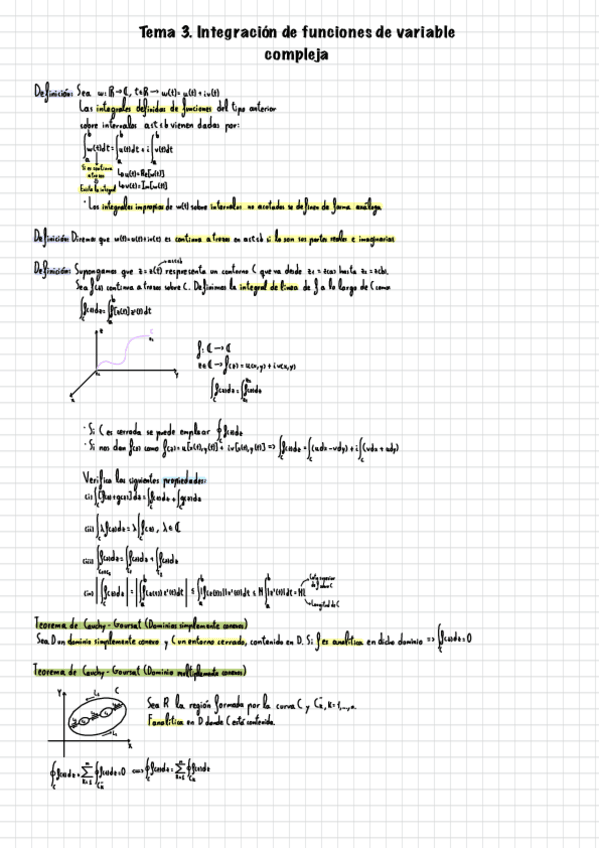 Tema 3. Integración de funciones de variable
compleja
Definición: Sea w: ℝ→ℂ, t∈ℝ → w(t)= u(t) + iv(t)
Las integrales definidas de funciones del tipo anterior
sobre intervalos a≤t≤b vienen dadas por:
∫_a^b w(t)dt = ∫_a^b u(t)dt + i ∫_a^b v(t)dt
Si es continua
a trozos
↳ u(t) = Re[w(t)]
Existe la integral
↳ v(t) = Im[w(t)]
· Las integrales impropias de w(t) sobre intervalos no acotados se definen de forma análoga
Definición: Diremos que w(t)=u(t)+iv(t) es continua a trozos en a≤t≤b si lo son sus partes reales e imaginarias
a≤t≤b
Definición: Supongamos que z = z(t) respresenta un contorno C que va desde z₁ = z(a) hasta z₂ = z(b).
Sea f(z) continua a trozos sobre C. Definimos la integral de línea de f a lo largo de C como
f: ℂ → ℂ
z∈ℂ → f(z) = u(x,y) + iv(x,y)
· Si C es cerrada se puede emplear ∮_C f(z)dz
· Si nos dan f(z) como f(z)=u[x(t),y(t)] + iv[x(t),y(t)] => ∫_C f(z)dz = ∫_C (udx-vdy) + i∫_C (vdx + udy)
Verifica las siguientes propiedades:
(i) ∫_C [f(z)+g(z)]dz = ∫_C f(z)dz + ∫_C g(z)dz
(ii) ∫_C λf(z)dz = λ∫_C f(z), λ∈ℂ
Cota superior
de f sobre C
(iv) |∫_C f(z)dz| = |∫_a^b f(z(t)) z'(t)dt| ≤ ∫_a^b |f(z(t))||z'(t)|dt ≤ M ∫_a^b |z'(t)|dt = ML
Longitud de C
Teorema de Cauchy - Goursat (Dominios simplemente conexos)
Sea D un dominio simplemente conexo y C un entorno cerrado, contenido en D. Si f es analítica en dicho dominio => ∫_C f(z)dz = 0
Teorema de Cauchy - Goursat (Dominio multiplemente conexos)
Sea R la región formada por la curva C y
F analítica en D donde C está contenida.